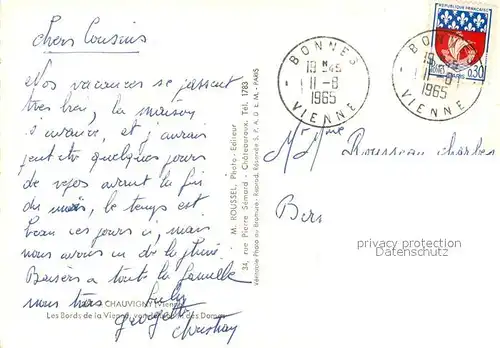 chers Cousins
Nos vacances se passent
très bien, la maison
s'avance, et j'aurai
peut être quelques jours
de repos avant la fin
du mois, le temps est
beau ces jours ci, mais
nous avons eu de la pluie.
Baisers a toute la famille
nous trois
CHAUVIGNY (Vienne)
Les Bords de la Vienne
Georgette
Christian
M. ROUSSEL, Photo-Editeur
34, rue Pierre Sémard - Châteauroux. Tél. 1783
Véritable Photo au Bromure - Reprod. Réservée S.P.A.D.E.M.-PARIS
BONNES
19 H 45
11-8
1965
VIENNE
BONNES
19
11-8
1965
VIENNE
REPUBLIQUE FRANÇAISE
0,30
Mr Mme Rousseau Charles
privacy protection
Datenschutz